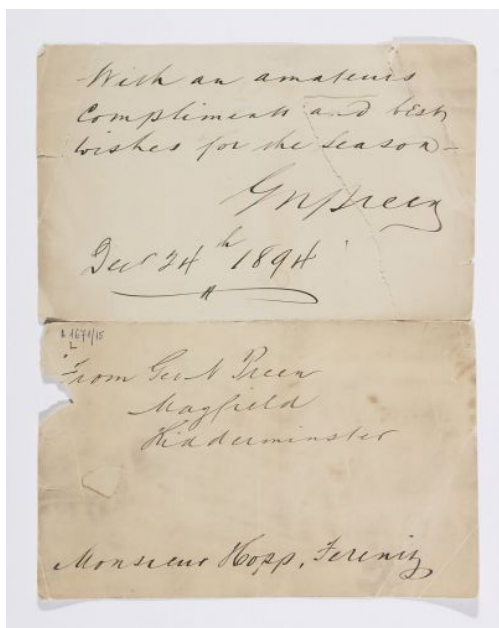 With an amateurs
Compliments and best
wishes for the season -
G N Preen
Dec 24th 1894
A 1671/15
L
From Geo N Preen
Mayfield
Kidderminster
Monsieur Hopp, Ferenz